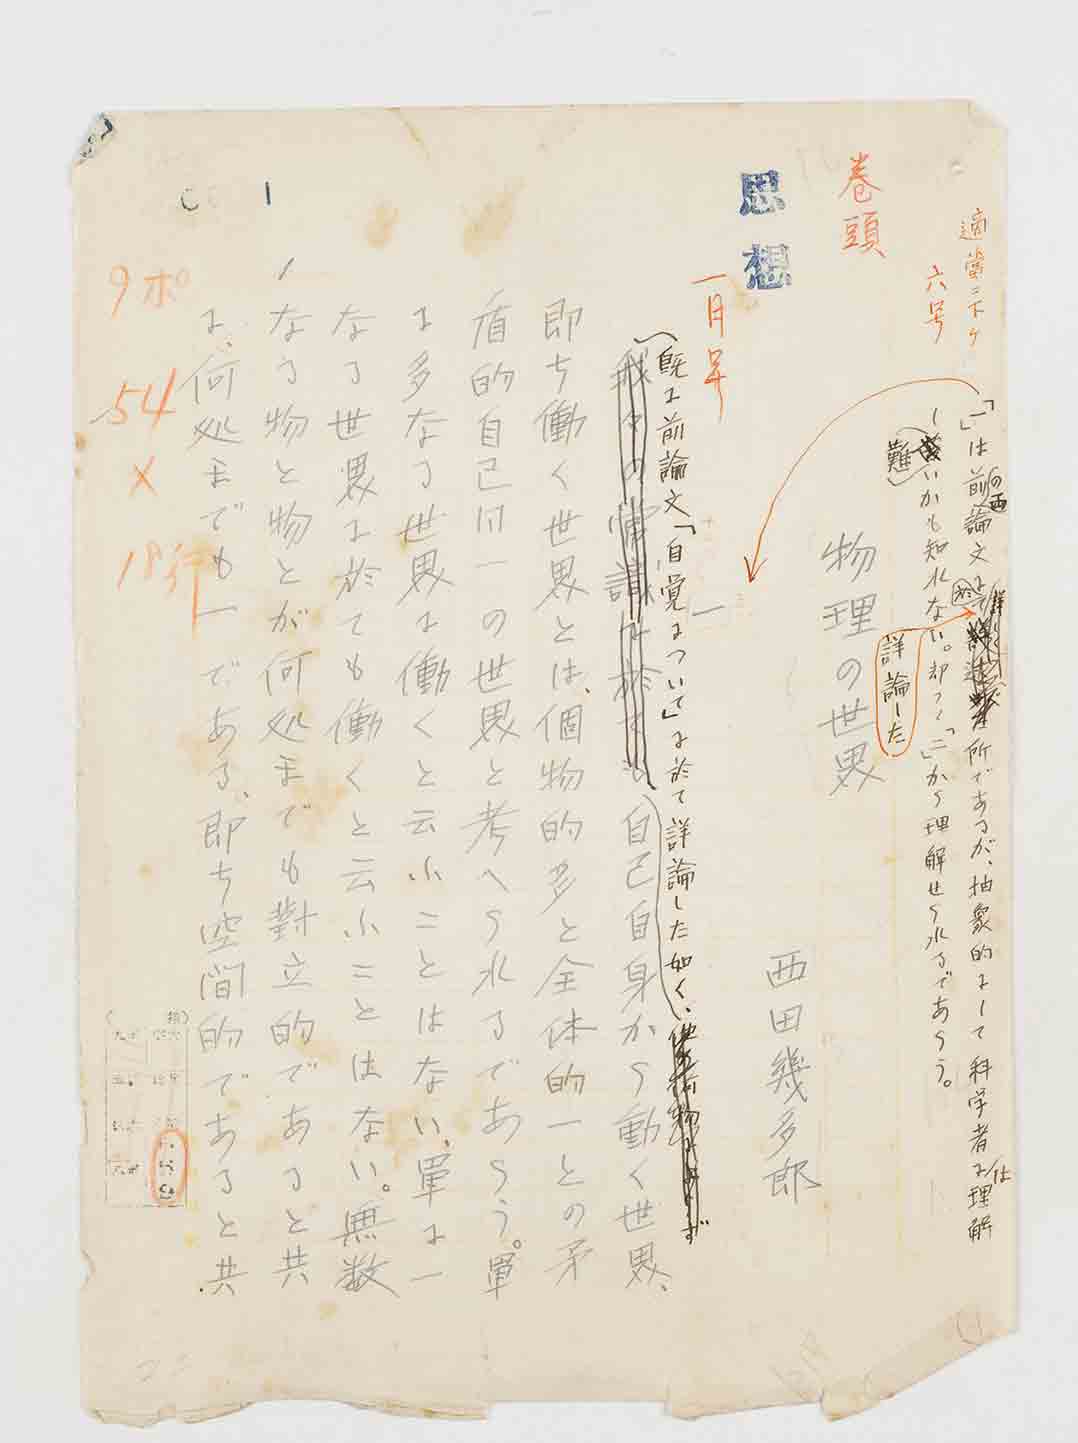 適當ニ下ケ
六号
「一」は前論文の西に於て詳論した所であるが、抽象的にして科学者には理解
し難いかも知れない。却つて「二」から理解せられるであらう。
巻頭
思想
一月号
物理の世界
西田幾多郎
一
既に前論文「自覚について」に於て詳論した如く、
我々の常識に於ても自己自身から動く世界、
即ち働く世界とは、個物的多と全体的一との矛
盾的自己同一の世界と考へられるであらう。單
に多なる世界に働くと云ふことはない、單に一
なる世界に於ても働くと云ふことはない。無数
なる物と物とが何処までも對立的であると共
に、何処までも一である、即ち空間的であると共
1
9ポ
54
×
18行